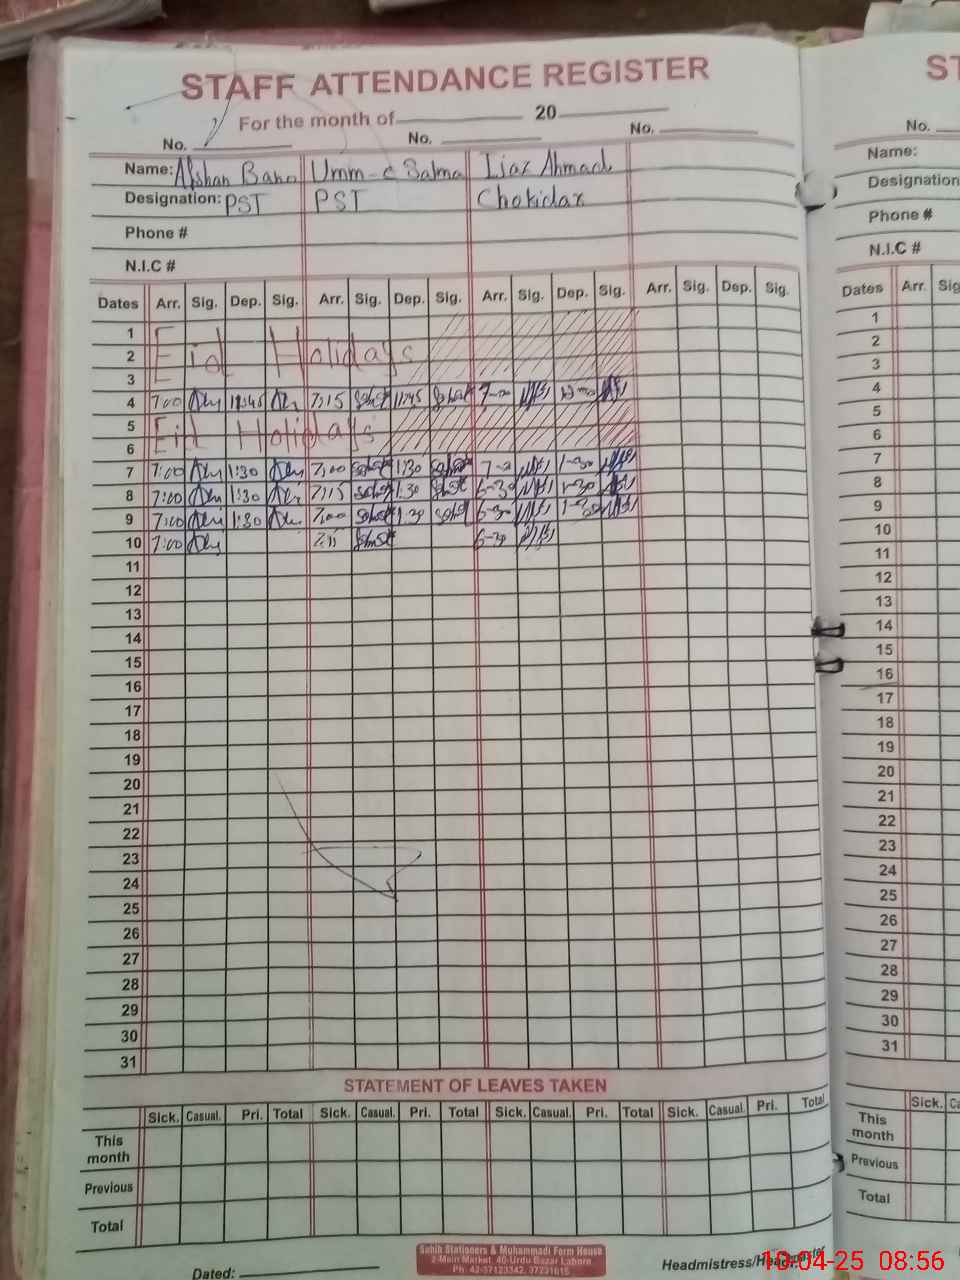 STAFF ATTENDANCE REGISTER ST
For the month of 20
No. No. No. No.
Name: Afshan Bano Umm-e Salma Ijaz Ahmad Name:
Designation: PST PST Chokidar Designation
Phone # Phone #
N.I.C # N.I.C #
Dates Arr. Sig. Dep. Sig. Arr. Sig. Dep. Sig. Arr. Sig. Dep. Sig. Arr. Sig. Dep. Sig. Dates Arr. Sig
1 1
2 Eid Holidays 2
3 3
4 7:00 11:45 7:15 11:45 7-00 4
5 5
6 Eid Holidays 6
7 7:00 1:30 7:00 1:30 1-30 7
8 7:00 1:30 7:15 1:30 6-30 1-30 8
9 7:00 1:30 7:00 1:30 6-30 1-30 9
10 7:00 7:15 6-30 10
11 11
12 12
13 13
14 14
15 15
16 16
17 17
18 18
19 19
20 20
21 21
22 22
23 23
24 24
25 25
26 26
27 27
28 28
29 29
30 30
31 31
STATEMENT OF LEAVES TAKEN
Sick. Casual. Pri. Total Sick. Casual. Pri. Total Sick. Casual. Pri. Total Sick. Casual. Pri. Total Sick. Ca
This month This month
Previous Previous
Total Total
Sahib Stationers & Muhammadi Form House
2-Main Market, 40-Urdu Bazar Lahore
Ph: 42-37123342, 37231615
Dated: Headmistress/
10-04-25 08:56